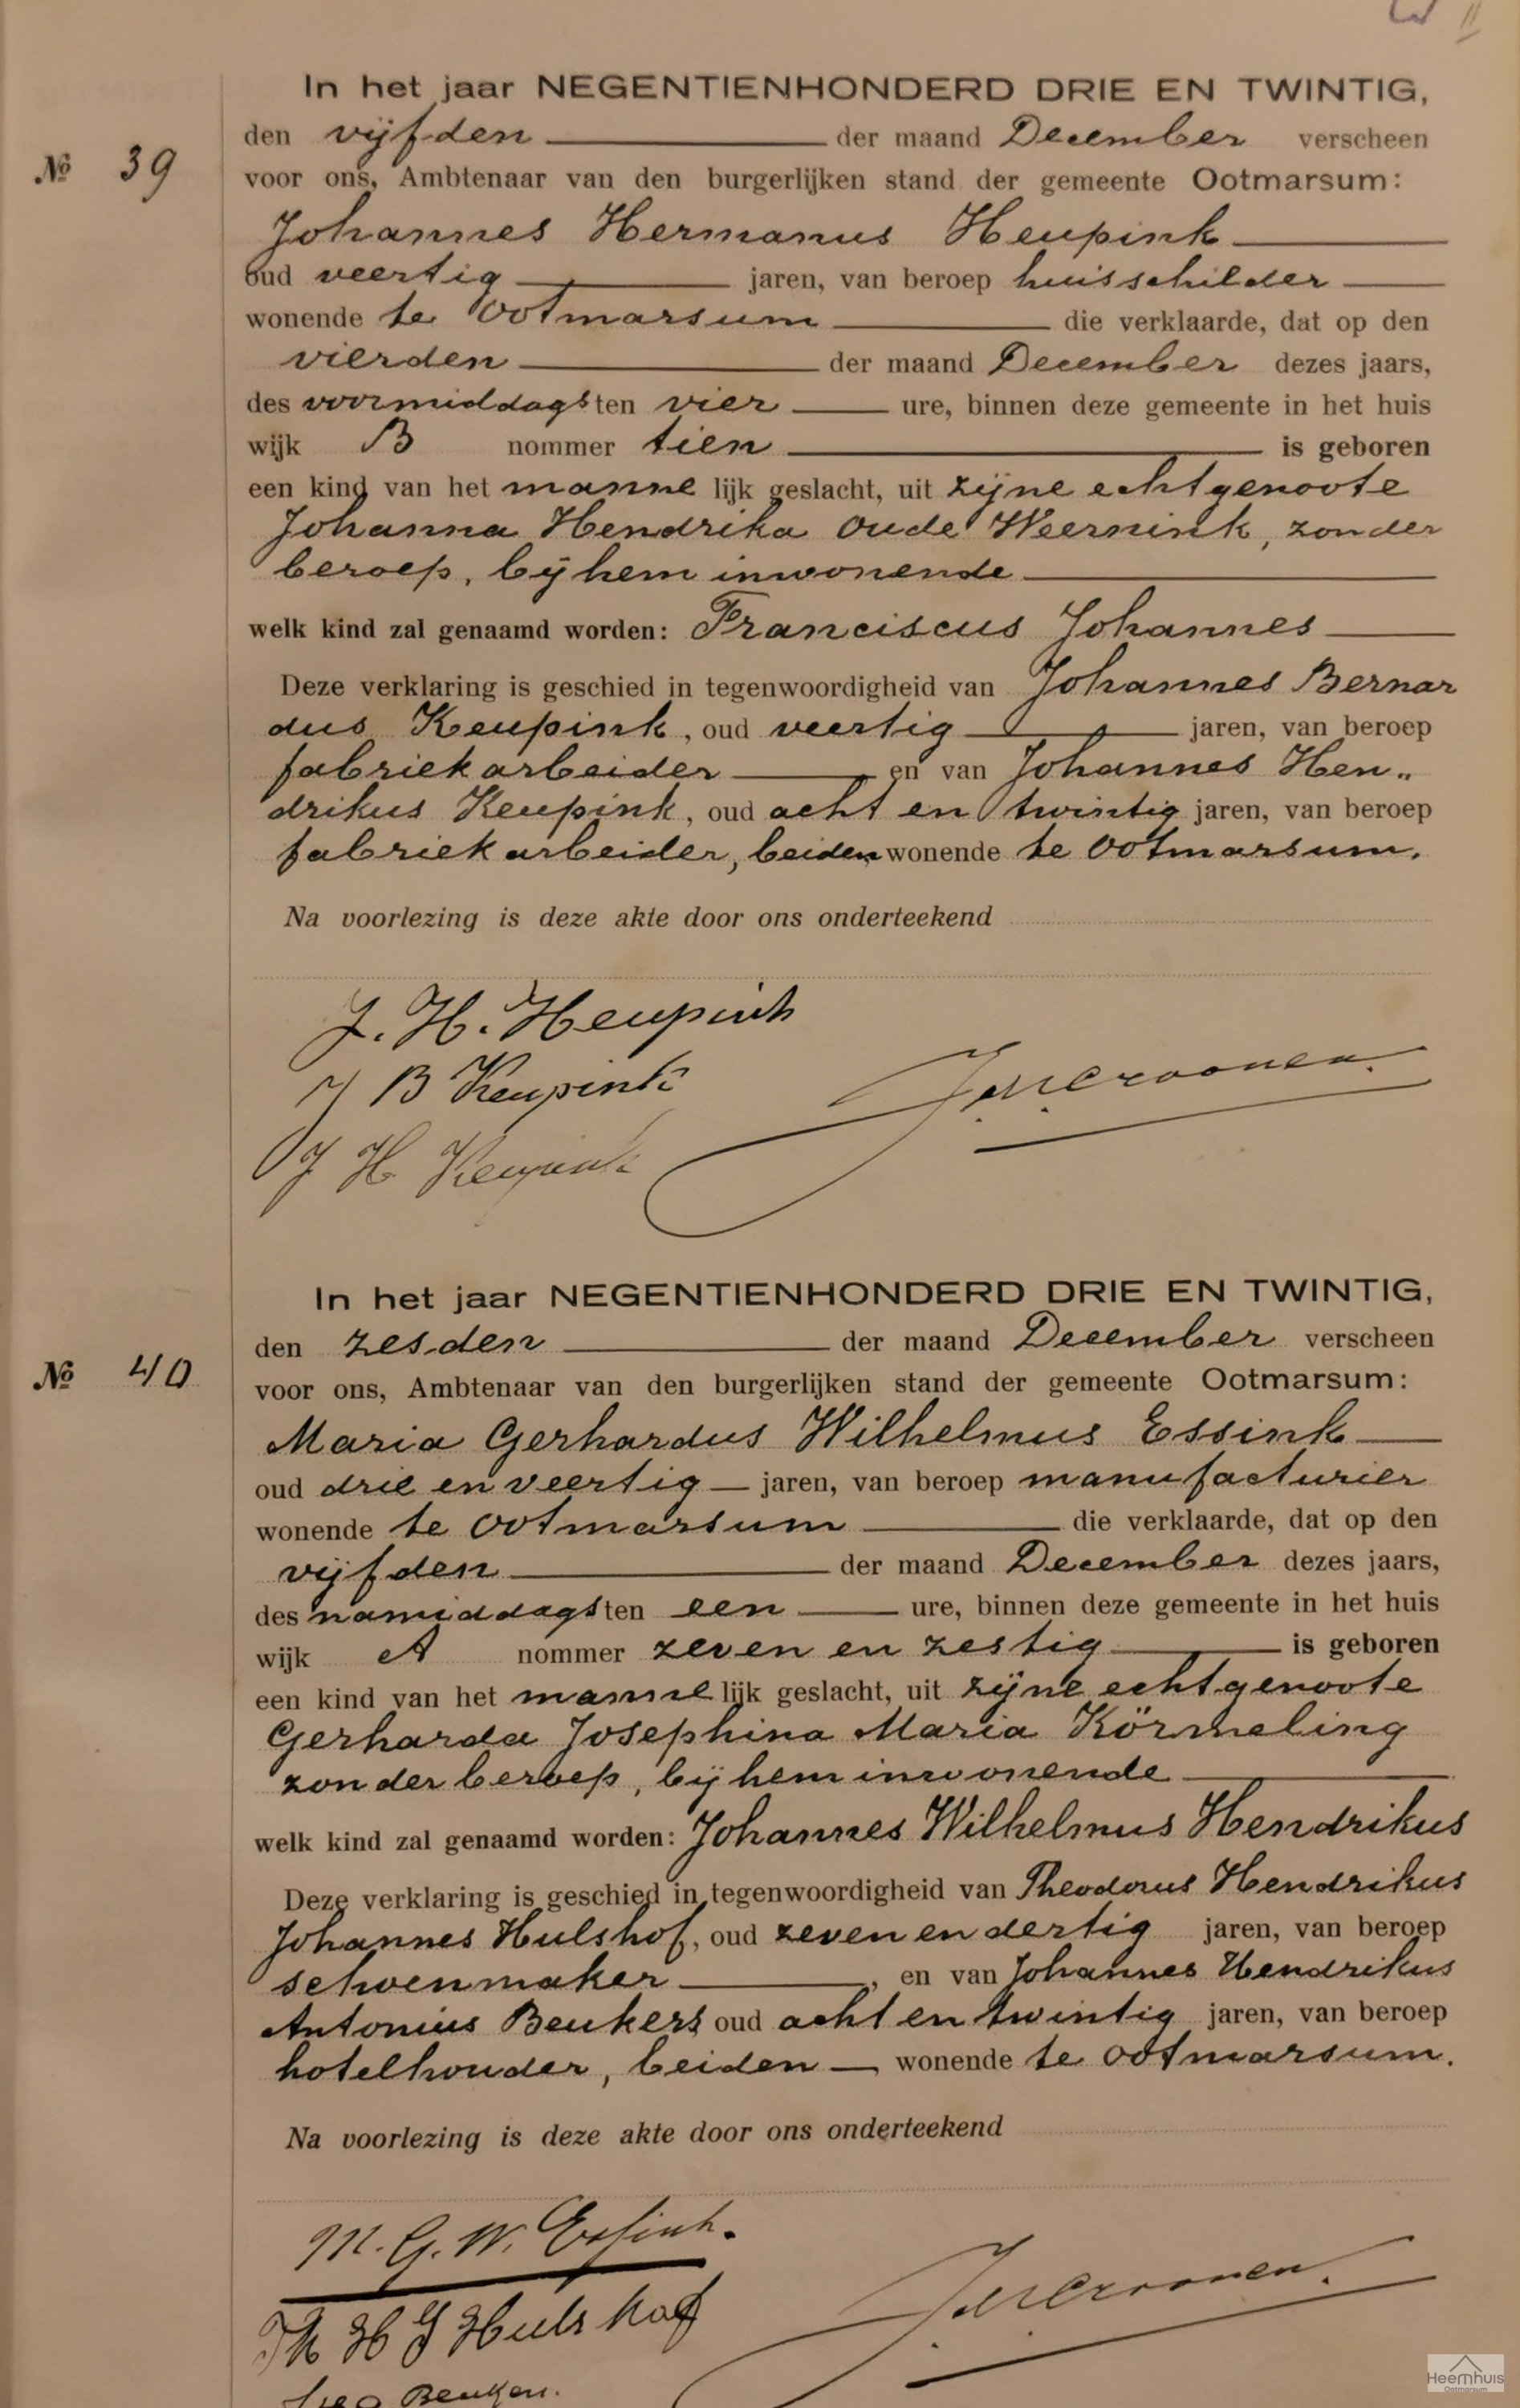 In het jaar NEGENTIENHONDERD DRIE EN TWINTIG,
den vijfden der maand December verscheen
№ 39
voor ons, Ambtenaar van den burgerlijken stand der gemeente Ootmarsum:
Johannes Hermanus Heupink
oud veertig jaren, van beroep huisschilder
wonende te Ootmarsum die verklaarde, dat op den
vierden der maand December dezes jaars,
des voormiddags ten vier ure, binnen deze gemeente in het huis
wijk B nommer tien is geboren
een kind van het manne lijk geslacht, uit zijne echtgenoote
Johanna Hendrika Oude Weernink, zonder
beroep, bij hem inwonende
welk kind zal genaamd worden: Franciscus Johannes
Deze verklaring is geschied in tegenwoordigheid van Johannes Bernar
dus Keupink, oud veertig jaren, van beroep
fabriekarbeider en van Johannes Hen„
drikus Keupink, oud acht en twintig jaren, van beroep
fabriekarbeider, beiden wonende te Ootmarsum.
Na voorlezing is deze akte door ons onderteekend
J. H. Heupink
J B Keupink
J H Keupink
In het jaar NEGENTIENHONDERD DRIE EN TWINTIG,
den zesden der maand December verscheen
№ 40
voor ons, Ambtenaar van den burgerlijken stand der gemeente Ootmarsum:
Maria Gerhardus Wilhelmus Essink
oud drie en veertig jaren, van beroep manufacturier
wonende te Ootmarsum die verklaarde, dat op den
vijfden der maand December dezes jaars,
des namiddags ten een ure, binnen deze gemeente in het huis
wijk A nommer zeven en zestig is geboren
een kind van het manne lijk geslacht, uit zijne echtgenoote
Gerharda Josephina Maria Körmeling
zonder beroep, bij hem inwonende
welk kind zal genaamd worden: Johannes Wilhelmus Hendrikus
Deze verklaring is geschied in tegenwoordigheid van Theodorus Hendrikus
Johannes Hulshof, oud zeven en dertig jaren, van beroep
schoenmaker, en van Johannes Hendrikus
Antonius Beukers oud acht en twintig jaren, van beroep
hotelhouder, beiden wonende te Ootmarsum.
Na voorlezing is deze akte door ons onderteekend
M. G. W. Essink.
Th H J Hulshof
Beukers.
Heemhuis
Ootmarsum